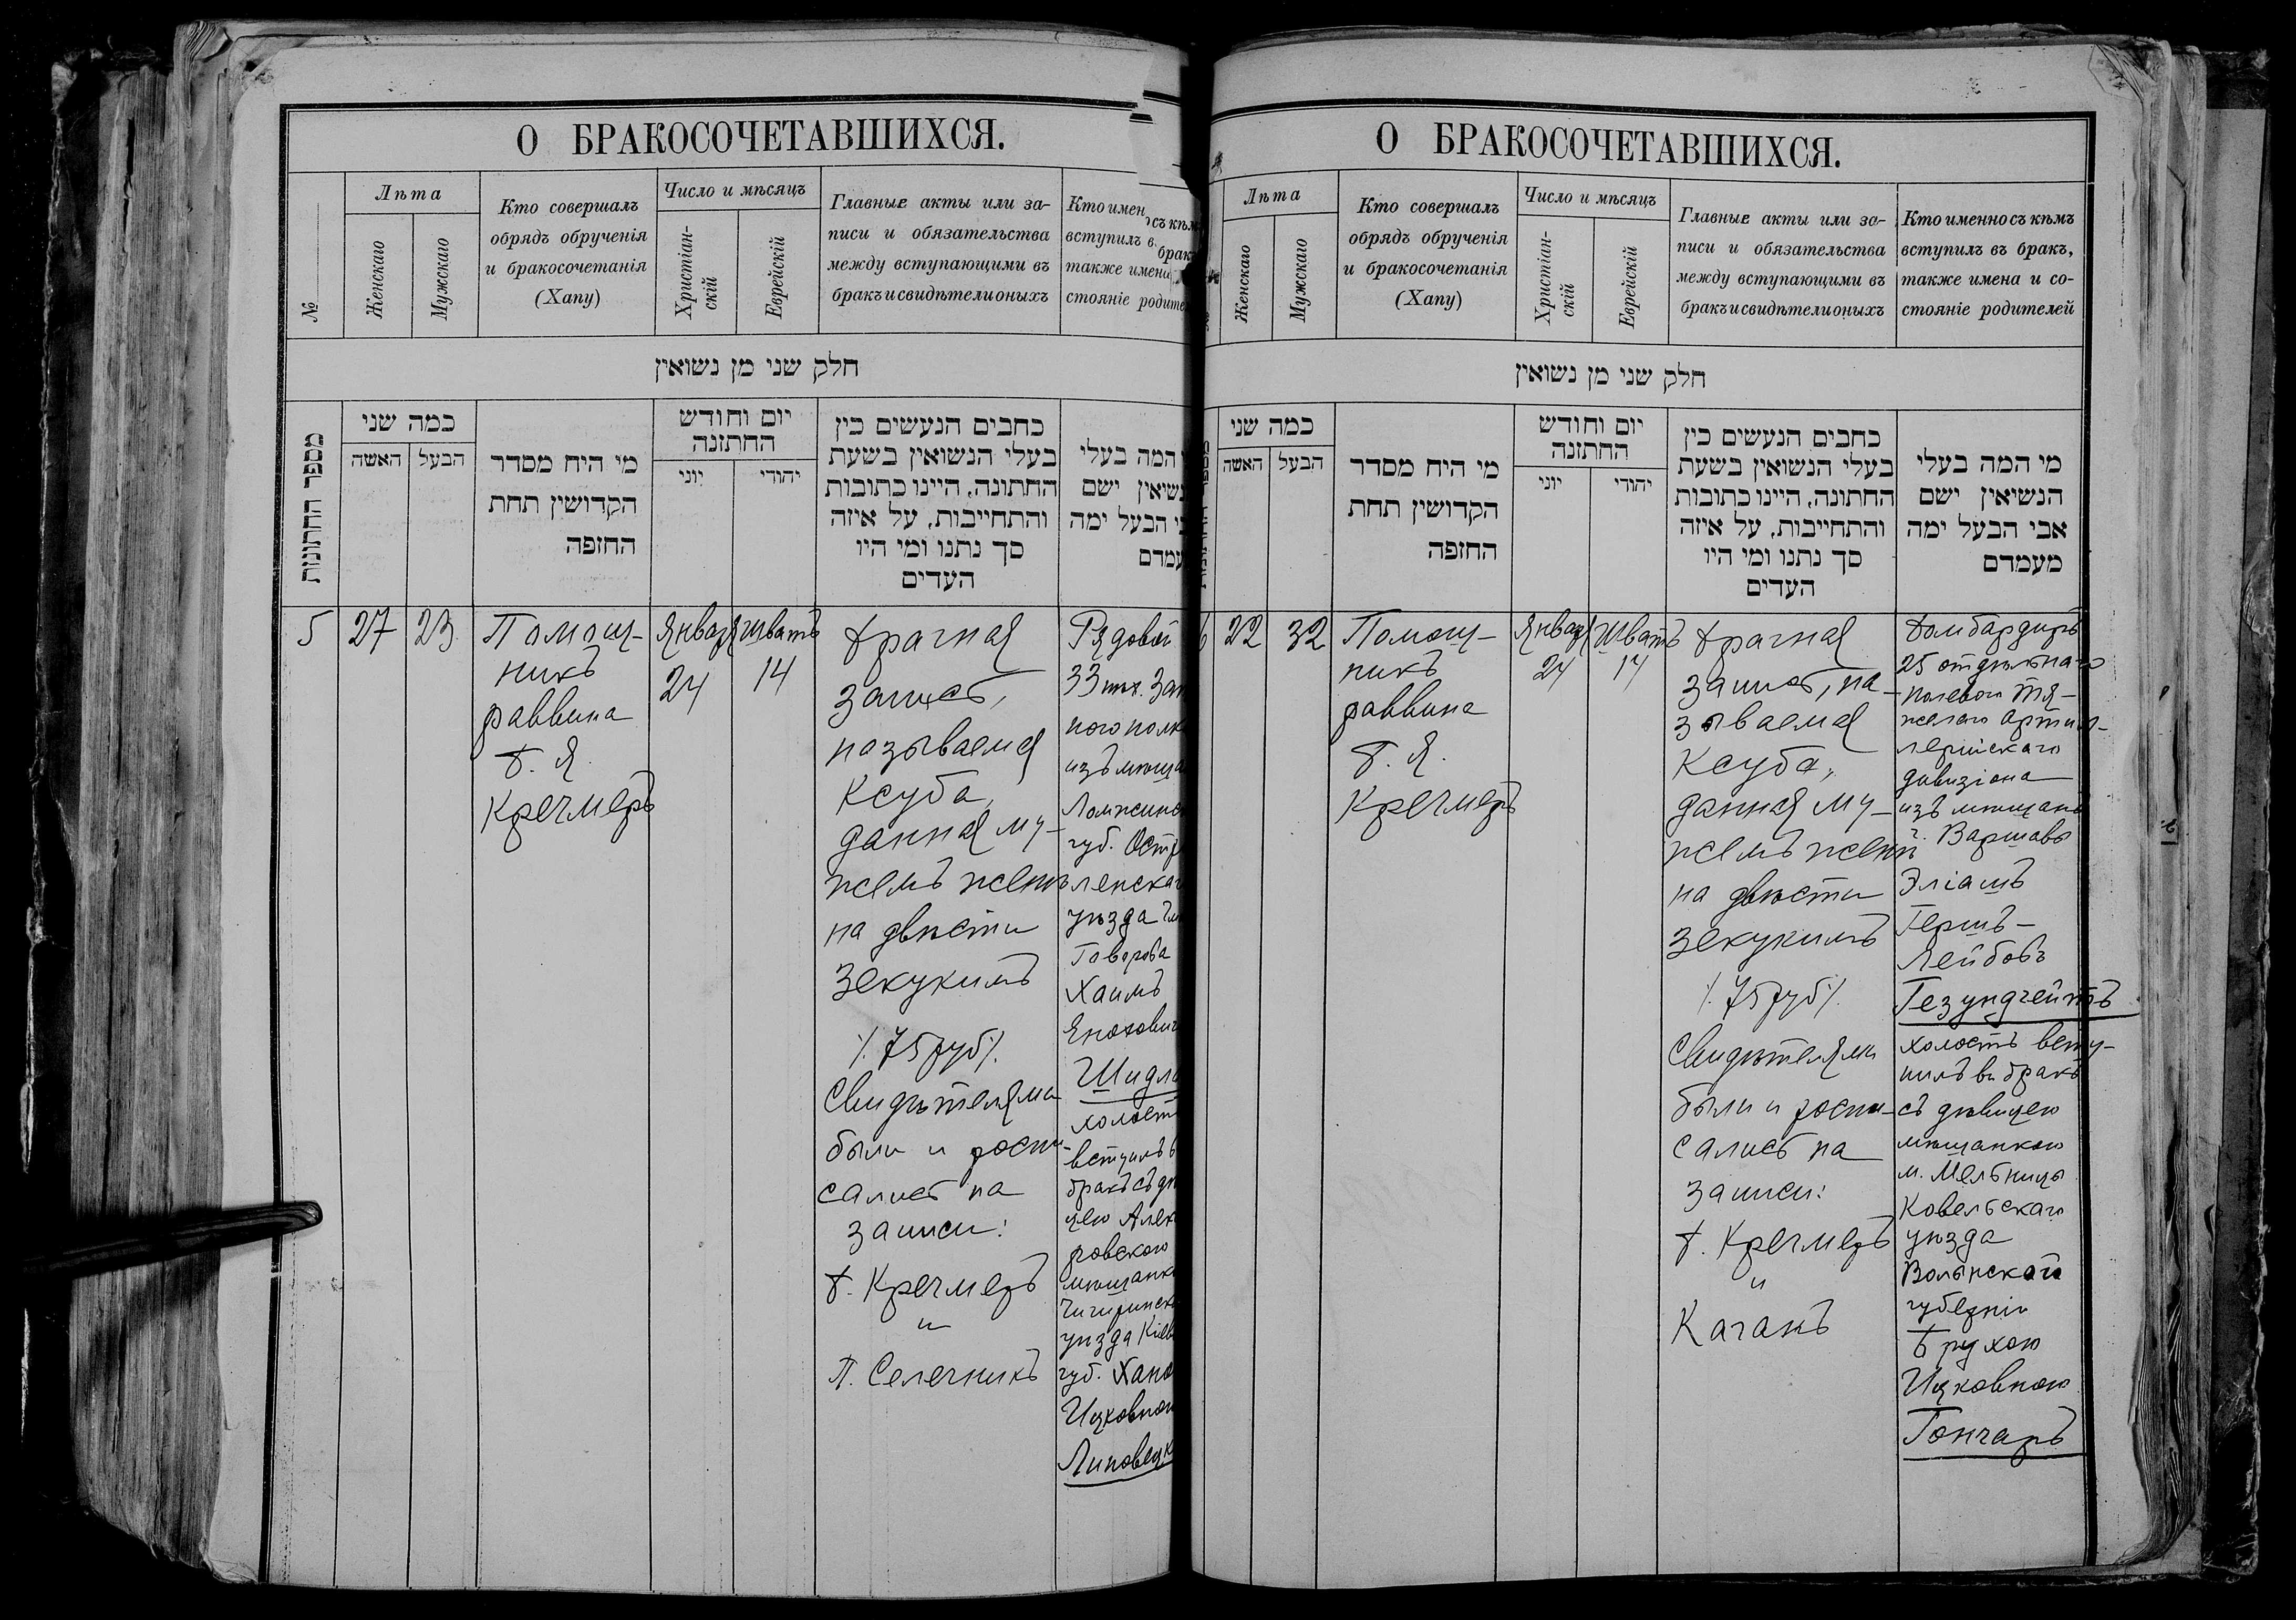 О БРАКОСОЧЕТАВШИХСЯ.
№
Лѣта
Женскаго
Мужскаго
Кто совершалъ
обрядъ обрученія
и бракосочетанія
(Хапу)
Число и мѣсяцъ
Христіан-
скій
Еврейскій
Главные акты или за-
писи и обязательства
между вступающими въ
бракъ и свидѣтели оныхъ
Кто имен съ кѣмъ
вступилъ в. брак
также имена
стояніе родите
חלק שני מן נשואין
מספר החתונות
כמה שני
האשה
הבעל
מי היח מסדר
הקדושין תחת
החופה
יום וחודש
החתונה
יוני
יהודי
כתבים הנעשים בין
בעלי הנשואין בשעת
החתונה, היינו כתובות
והתחייבות, על איזה
סך נתנו ומי היו
העדים
המה בעלי
נשיאין ישם
בי הבעל ימה
עמדם
5
27
23
Помощ-
никъ
раввина
Б. Я.
Кречмеръ
Января
24
Шватъ
14
Брачная
запись,
называемая
Ксуба,
данная му-
жемъ женѣ
на двѣсти
Зекукимъ
/. 75 руб /.
Свидѣтелями
были и распи-
сались на
записи:
Б. Кречмеръ
и
П. Селечникъ
Рядовой
33 пѣх. Зап
ного полк
изъ мѣща
Ломжинс
губ. Остр
ленскаг
уѣзда
Говорова
Хаимъ
Еноховичъ
Шидл
холост
вступилъ в
бракъ съ дѣ
цею Алек
ровскою
мѣщанк
Чигиринск
уѣзда Кіев
губ. Хано
Ицковною
Липовецк
О БРАКОСОЧЕТАВШИХСЯ.
Лѣта
Женскаго
Мужскаго
Кто совершалъ
обрядъ обрученія
и бракосочетанія
(Хапу)
Число и мѣсяцъ
Христіан-
скій
Еврейскій
Главные акты или за-
писи и обязательства
между вступающими въ
бракъ и свидѣтели оныхъ
Кто именно съ кѣмъ
вступилъ въ бракъ,
также имена и со-
стояніе родителей
חלק שני מן נשואין
כמה שני
האשה
הבעל
מי היח מסדר
הקדושין תחת
החופה
יום וחודש
החתונה
יוני
יהודי
כתבים הנעשים בין
בעלי הנשואין בשעת
החתונה, היינו כתובות
והתחייבות, על איזה
סך נתנו ומי היו
העדים
מי המה בעלי
הנשיאין ישם
אבי הבעל ימה
מעמדם
6
22
32
Помощ-
никъ
раввина
Б. Я.
Кречмеръ
Января
24
Шватъ
14
Брачная
запись, на-
зываемая
Ксуба,
данная му-
жемъ женѣ
на двѣсти
Зекукимъ
/. 75 руб /.
Свидѣтелями
были и распи-
сались на
записи:
Б. Кречмеръ
и
Каганъ
Бомбардиръ
25 отдѣльнаго
полевого тя-
желаго артил-
лерійскаго
дивизіона
изъ мѣщанъ
г. Варшавы
Эліашъ
Гершъ-
Лейбовъ
Гезундгейтъ
холостъ всту-
пилъ въ бракъ
съ дѣвицею
мѣщанкою
м. Мельницы
Ковельскаго
уѣзда
Волынской
губерніи
Брухою
Ицковною
Гончаръ